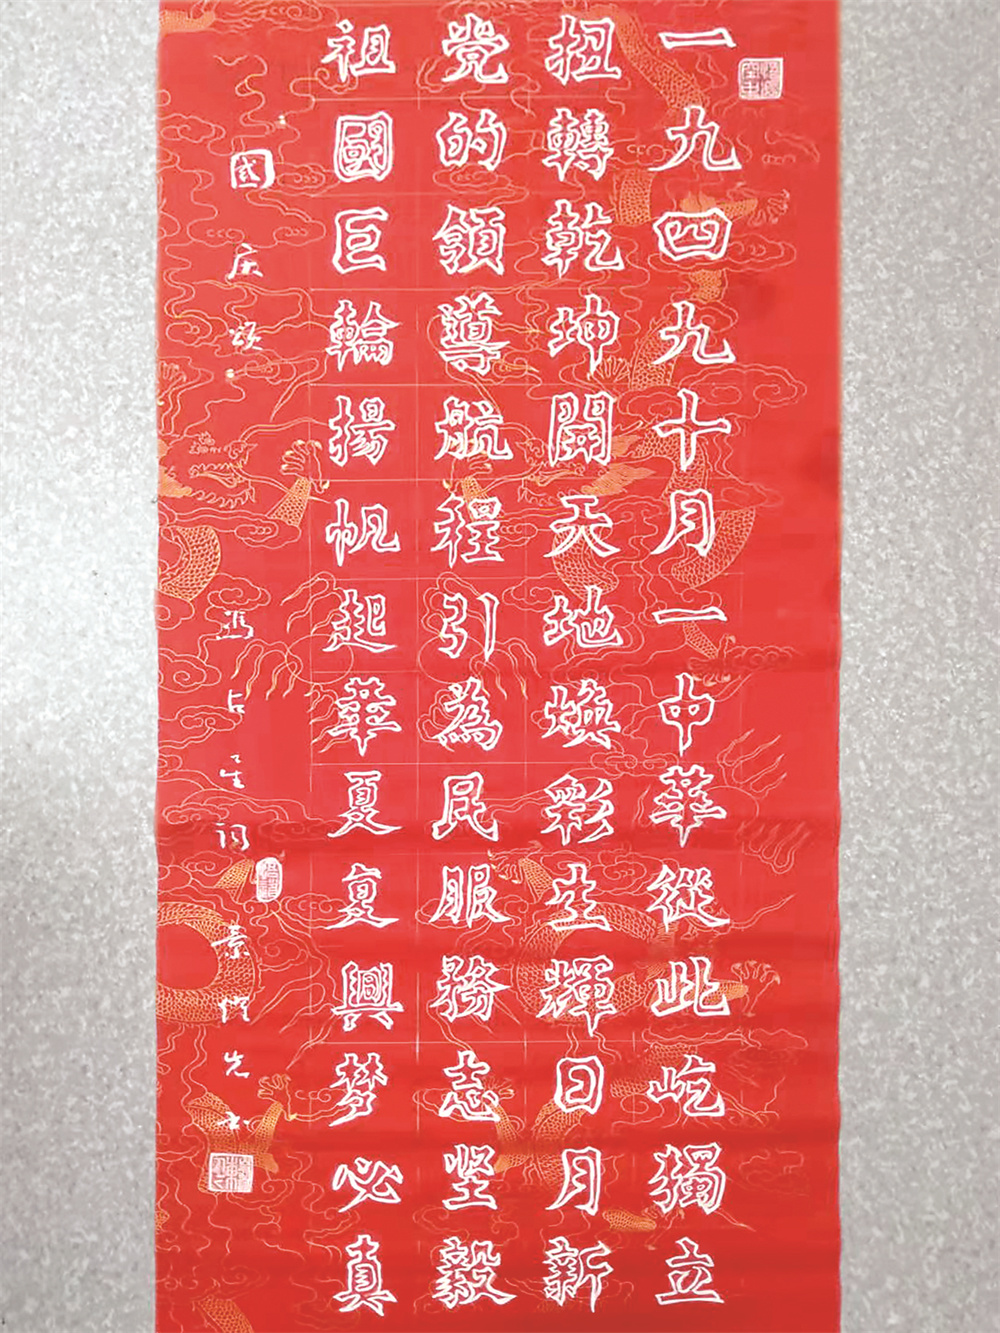 一九四九十月一中華從此屹獨立
扭轉乾坤開天地煥彩生輝日月新
党的領導航程引為民服務志坚毅
祖國巨輪揚帆起華夏夐興梦必真
國庆颂 馮占生词 景 先书